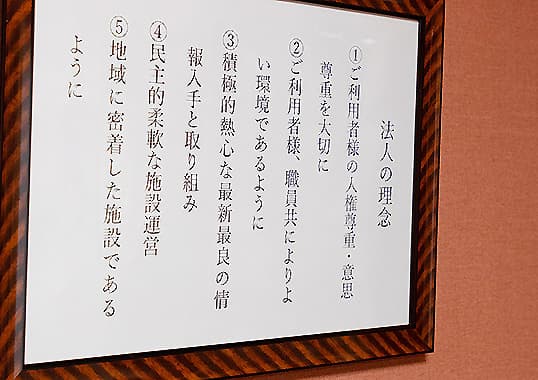 法人の理念
①ご利用者様の人権尊重・意思
尊重を大切に
②ご利用者様、職員共によりよ
い環境であるように
③積極的熱心な最新最良の情
報入手と取り組み
④民主的柔軟な施設運営
⑤地域に密着した施設である
ように